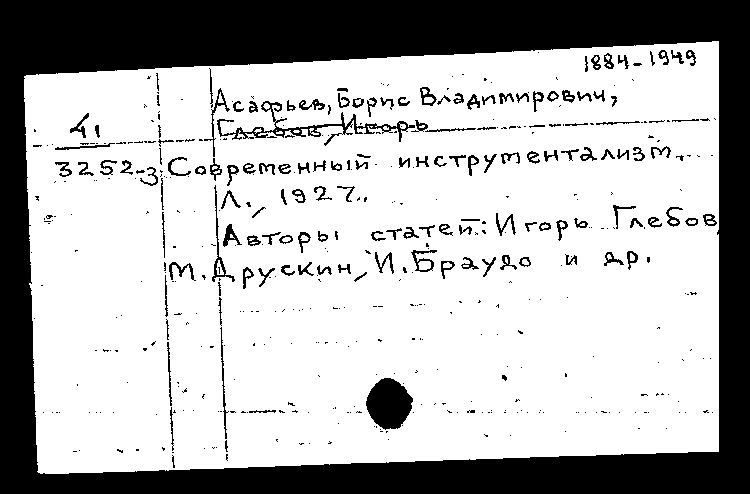 1884-1949
Асафьев, Борис Владимирович,
Глебов, Игорь
41
3252-3 Современный инструментализм.
Л., 1927.
Авторы статей: Игорь Глебов,
М. Друскин, И. Браудо и др.